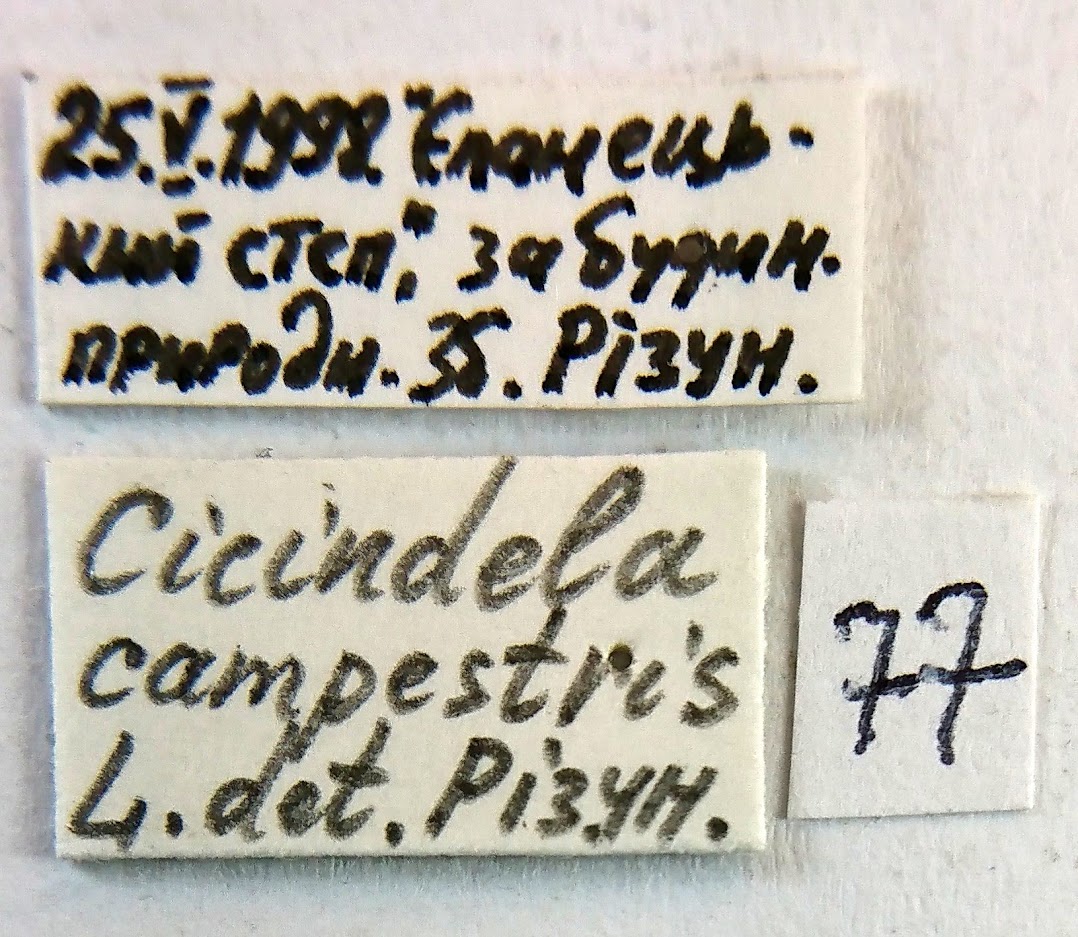 25.V.1992 "Єланець-
кий степ", за будин.
природи. Зб. Різун.
Cicindela
campestris
L. det. Різун.
77